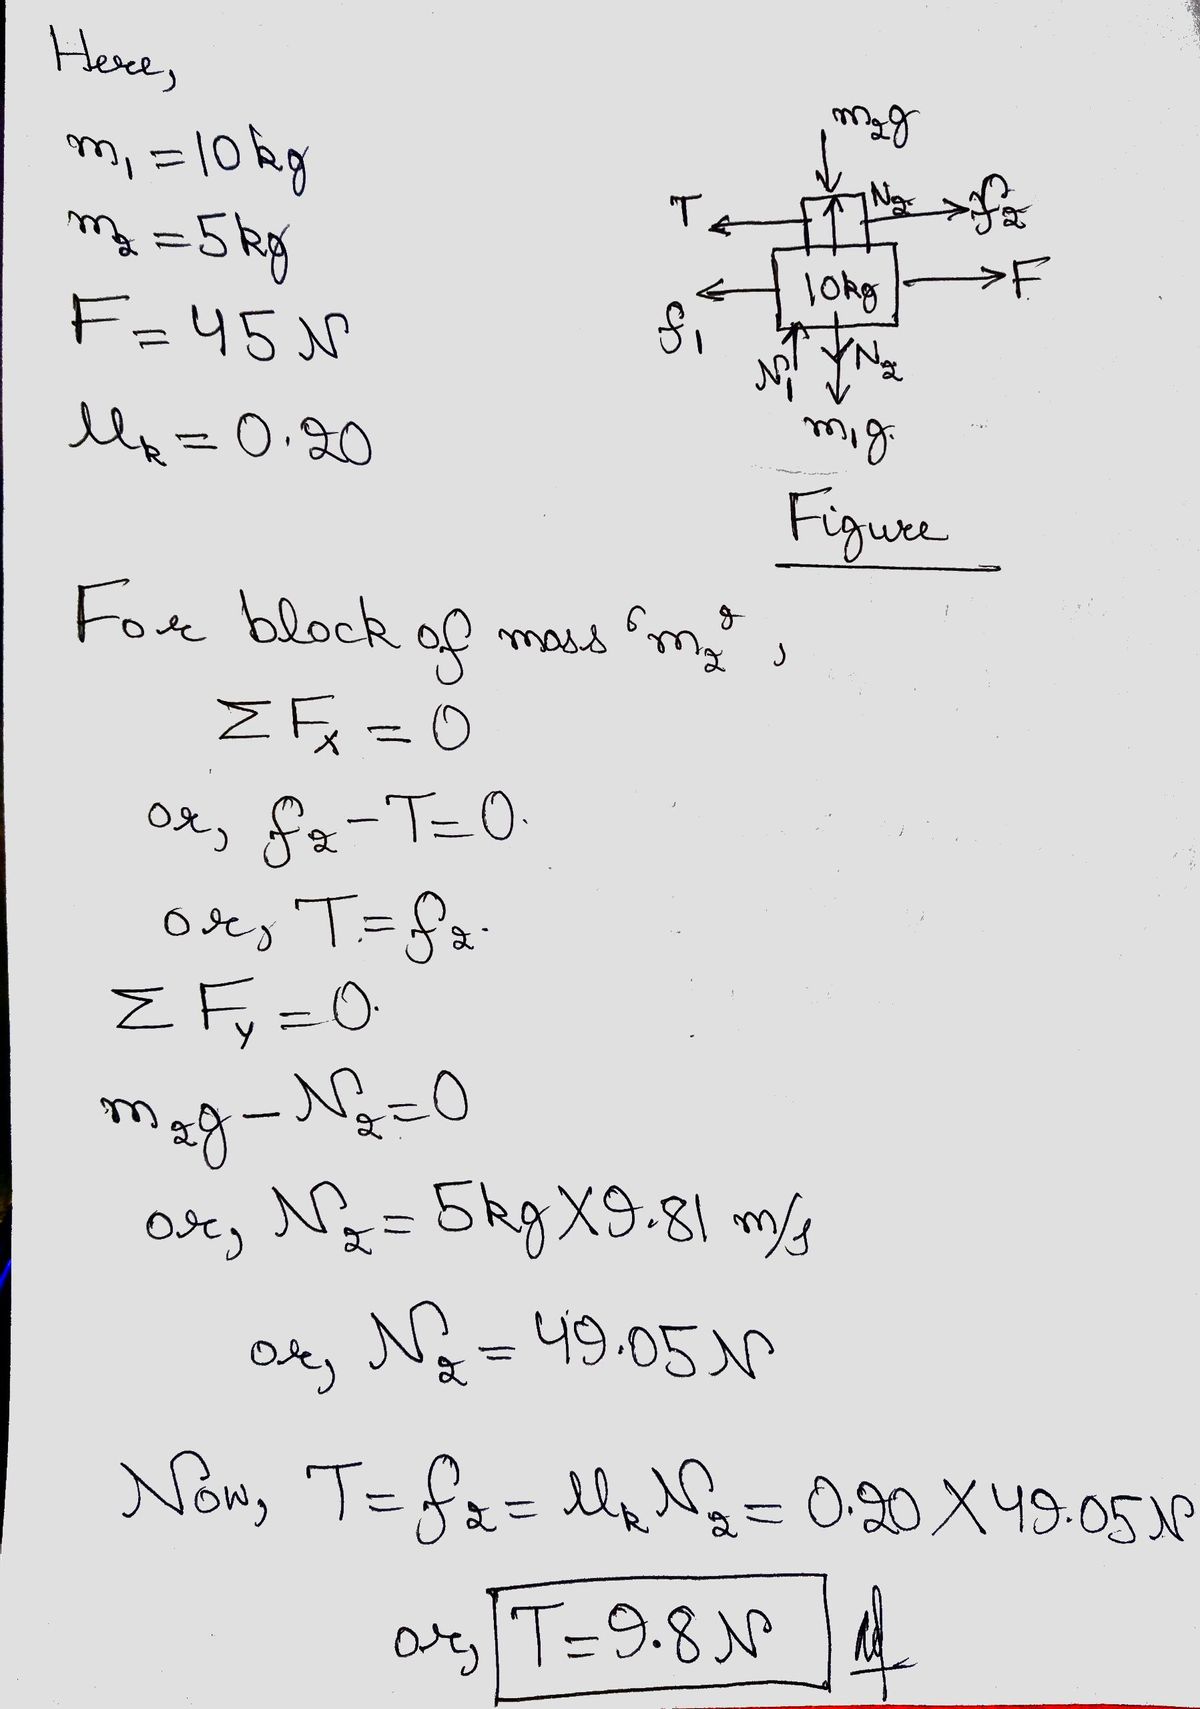 Here,
m₁ = 10 kg
m₂ = 5 kg
F = 45 N
μₖ = 0.20
m₂g
T
N₂
f₂
10kg
F
f₁
N₁
N₂
m₁g.
Figure
For block of mass ‘m₂’,
ΣFₓ = 0
or, f₂ - T = 0.
or, T = f₂.
ΣFᵧ = 0.
m₂g - N₂ = 0
or, N₂ = 5kg X 9.81 m/s
or, N₂ = 49.05 N
Now, T = f₂ = μₖN₂ = 0.20 X 49.05 N
or, T = 9.8 N